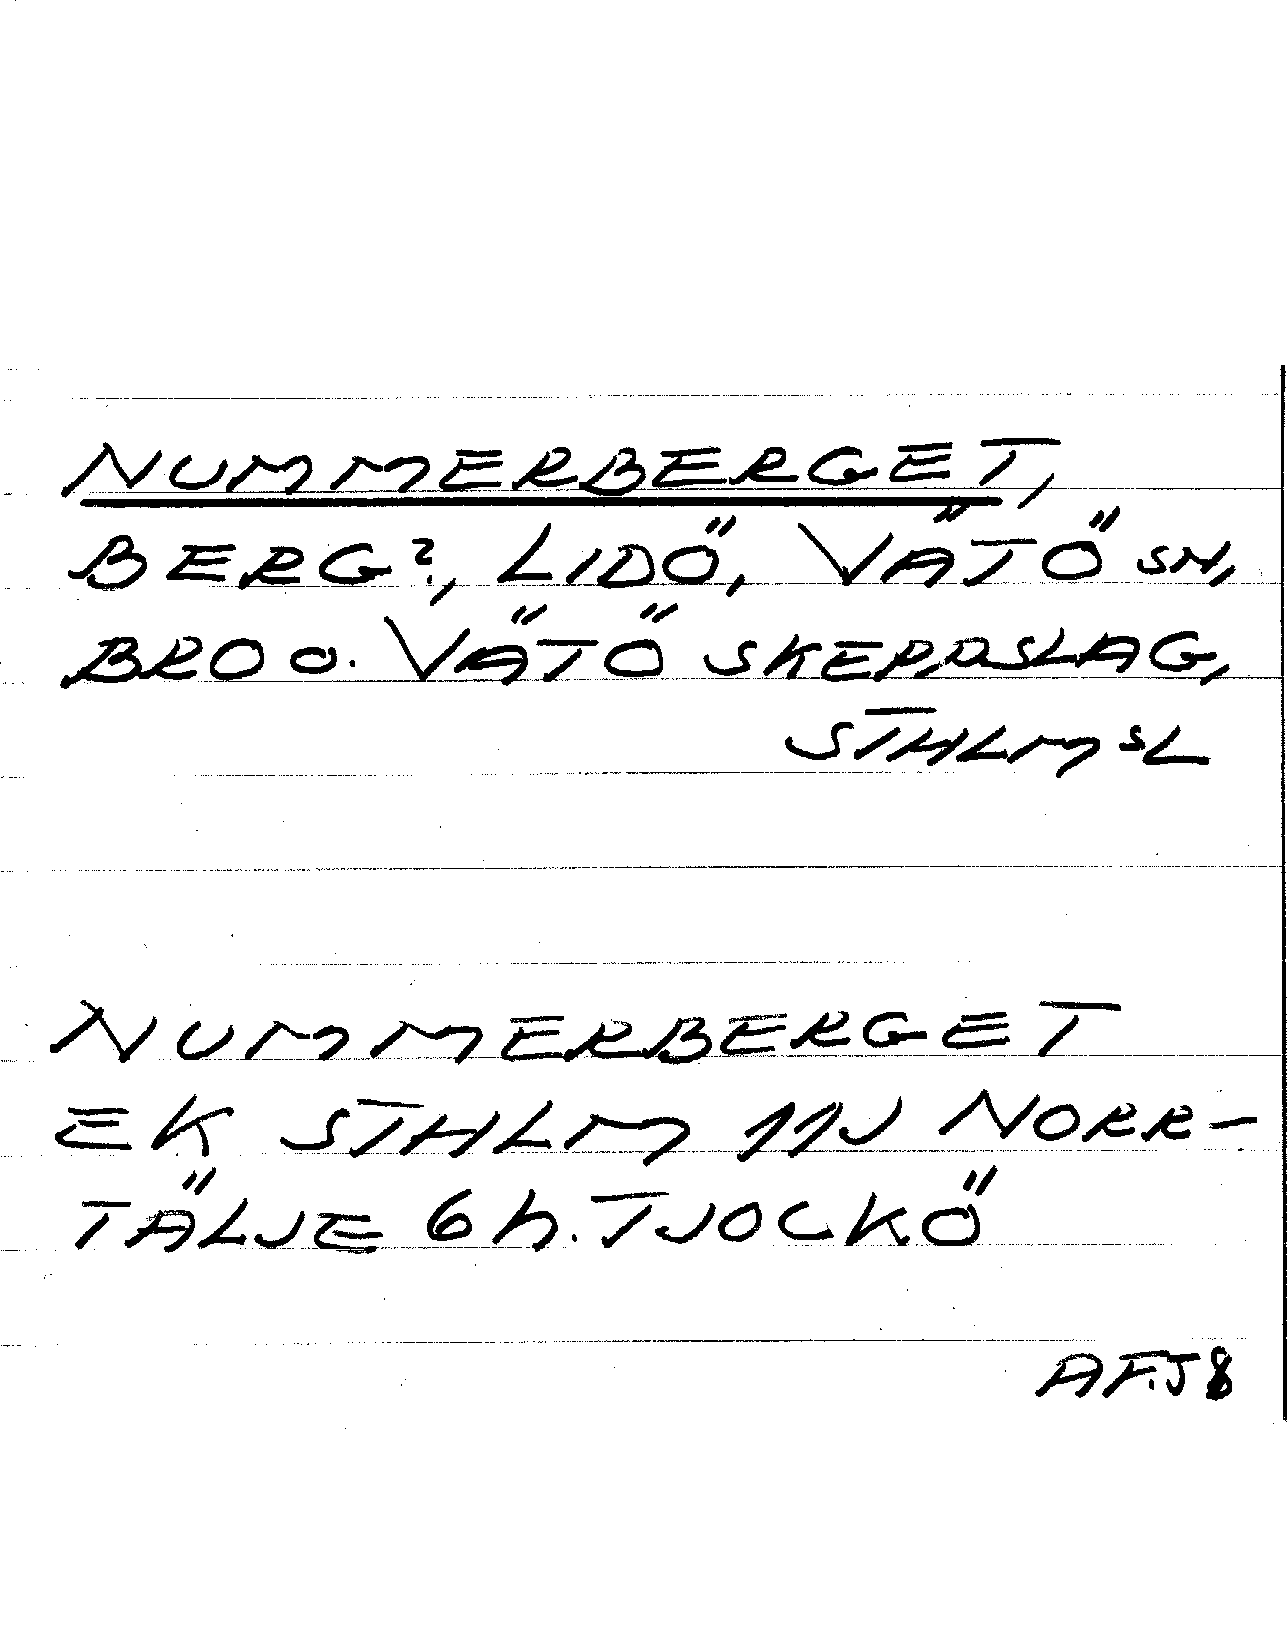 NUMMERBERGET,
BERG?, LIDÖ, VÄTÖ SN,
BRO O. VÄTÖ SKEPPSLAG,
STHLMSL
NUMMERBERGET
EK STHLM 11J NORR-
TÄLJE 6h. TJOCKÖ
AFJ8